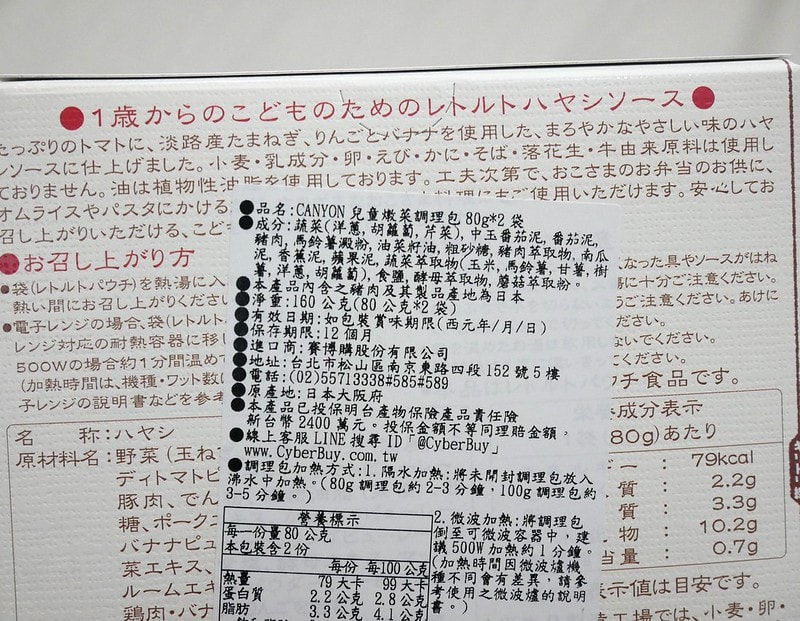 ●1歳からのこどものためのレトルトハヤシソース●
たっぷりのトマトに、淡路産たまねぎ、りんごとバナナを使用した、まろやかなやさしい味のハヤ
シソースに仕上げました。小麦・乳成分・卵・えび・かに・そば・落花生・牛由来原料は使用し
ておりません。油は植物性油脂を使用しております。工夫次第で、おこさまのお弁のお供に、
オムライスやパスタにかける
料理にもご使用いただけます。安心してお
召し上がりいただける、こど
●お召し上がり方
●袋(レトルトパウチ)を熱湯に入
熱い間にお召し上がりくださ
●電子レンジの場合、袋(レトルト
レンジ対応の耐熱容器に移し
500Wの場合約1分間温め
(加熱時間は、機種・ワット数に
子レンジの説明書などを参考
なった具やソースがはね
十分ご注意ください。
ご注意ください。あけに
ください。
ないでください。
ください。
ウチ食品です。
●品名:CANYON 兒童嫩菜調理包 80g*2 袋
●成分:蔬菜(洋蔥,胡蘿蔔,芹菜),中玉番茄泥,番茄泥,
豬肉,馬鈴薯澱粉,油菜籽油,粗砂糖,豬肉萃取物,南瓜
泥,香蕉泥,蘋果泥,蔬菜萃取物(玉米,馬鈴薯,甘薯,樹
薯,洋蔥,胡蘿蔔),食鹽,酵母萃取物,蘑菇萃取粉。
●本產品內含之豬肉及其製品產地為日本
●淨重:160 公克(80 公克*2 袋)
●有效日期:如包裝賞味期限(西元年/月/日)
●保存期限:12 個月
●進口商:賽博購股份有限公司
●地址:台北市松山區南京東路四段 152 號 5 樓
●電話:(02)55713338#585#589
●原產地:日本大阪府
●本產品已投保明台產物保險產品責任險
新台幣 2400 萬元。投保金額不等同理賠金額。
●線上客服 LINE 搜尋 ID「@CyberBuy」
www.CyberBuy.com.tw
●調理包加熱方式:1.隔水加熱:將未開封調理包放入
沸水中加熱。(80g 調理包約 2-3 分鐘,100g 調理包約
3-5 分鐘。)
2.微波加熱:將調理包
倒至可微波容器中,建
議 500W 加熱約 1 分鐘。
(加熱時間因微波爐機
種不同會有差異,請參
考使用之微波爐的說明
書。)
營養標示
每一份量 80 公克
本包裝含 2 份
每份 每 100 公克
熱量 79 大卡 99 大卡
蛋白質 2.2 公克 2.8 公克
脂肪 3.3 公克 4.1 公克
名 称:ハヤシ
原材料名:野菜(玉ね
ディトマトピ
豚肉、でん
糖、ポークエ
バナナピュ
菜エキス、
ルームエキ
鶏肉・バナ
成分表示
80g)あたり
ー: 79kcal
質: 2.2g
質: 3.3g
物: 10.2g
当量: 0.7g
表示値は目安です。
工場では、小麦・卵・